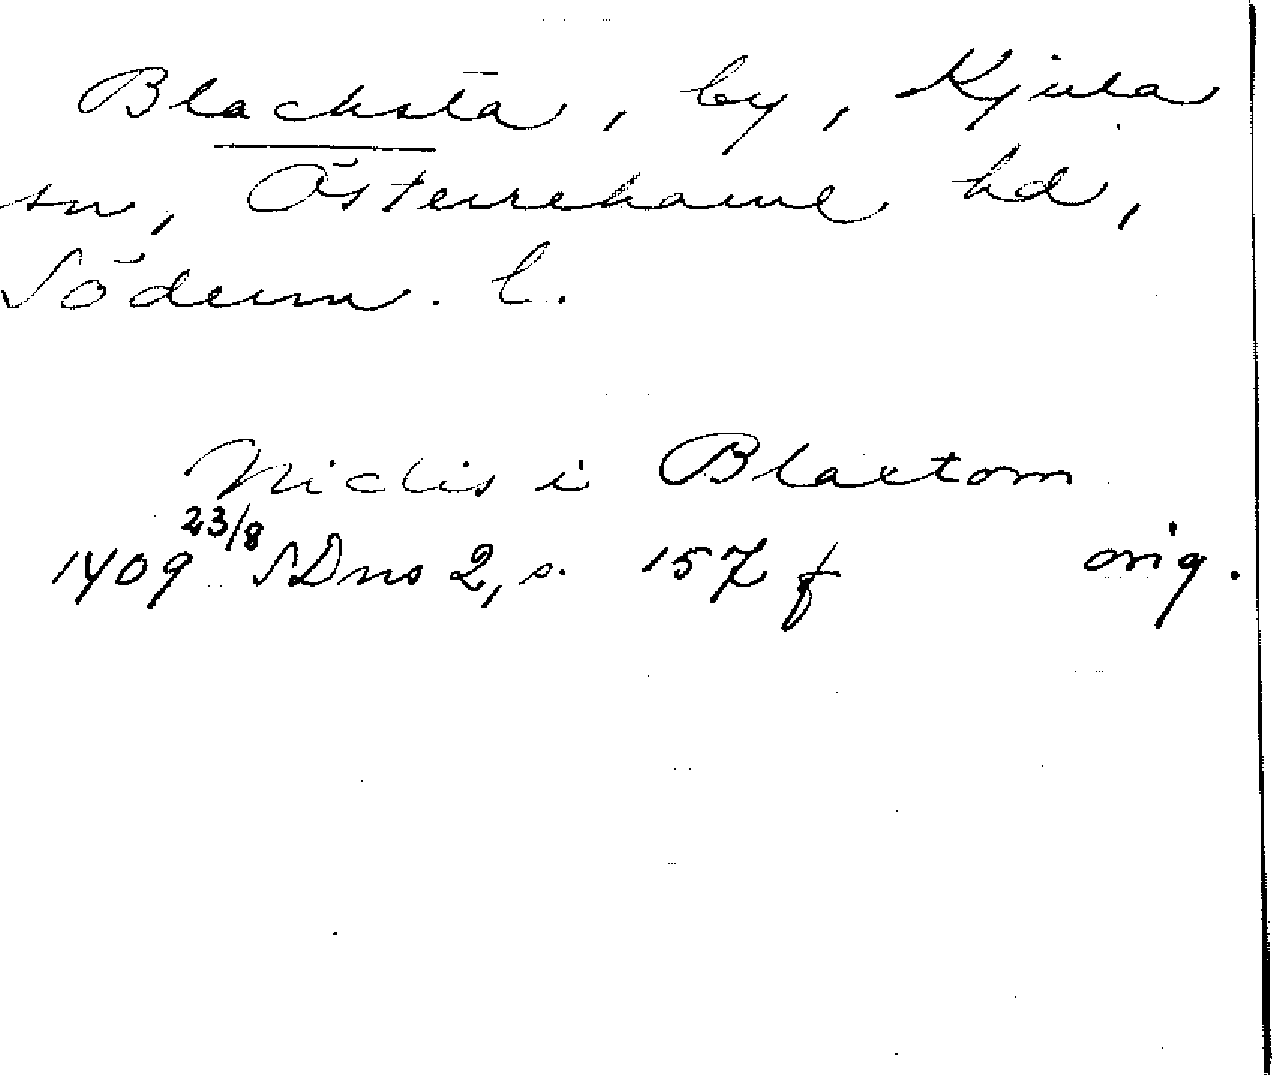 Blacksta, by, Kjula
sn, Österrekarne hd,
Söderm. l.
Niclis i Blactom
1409 23/8 SDns 2, s. 157 f orig.